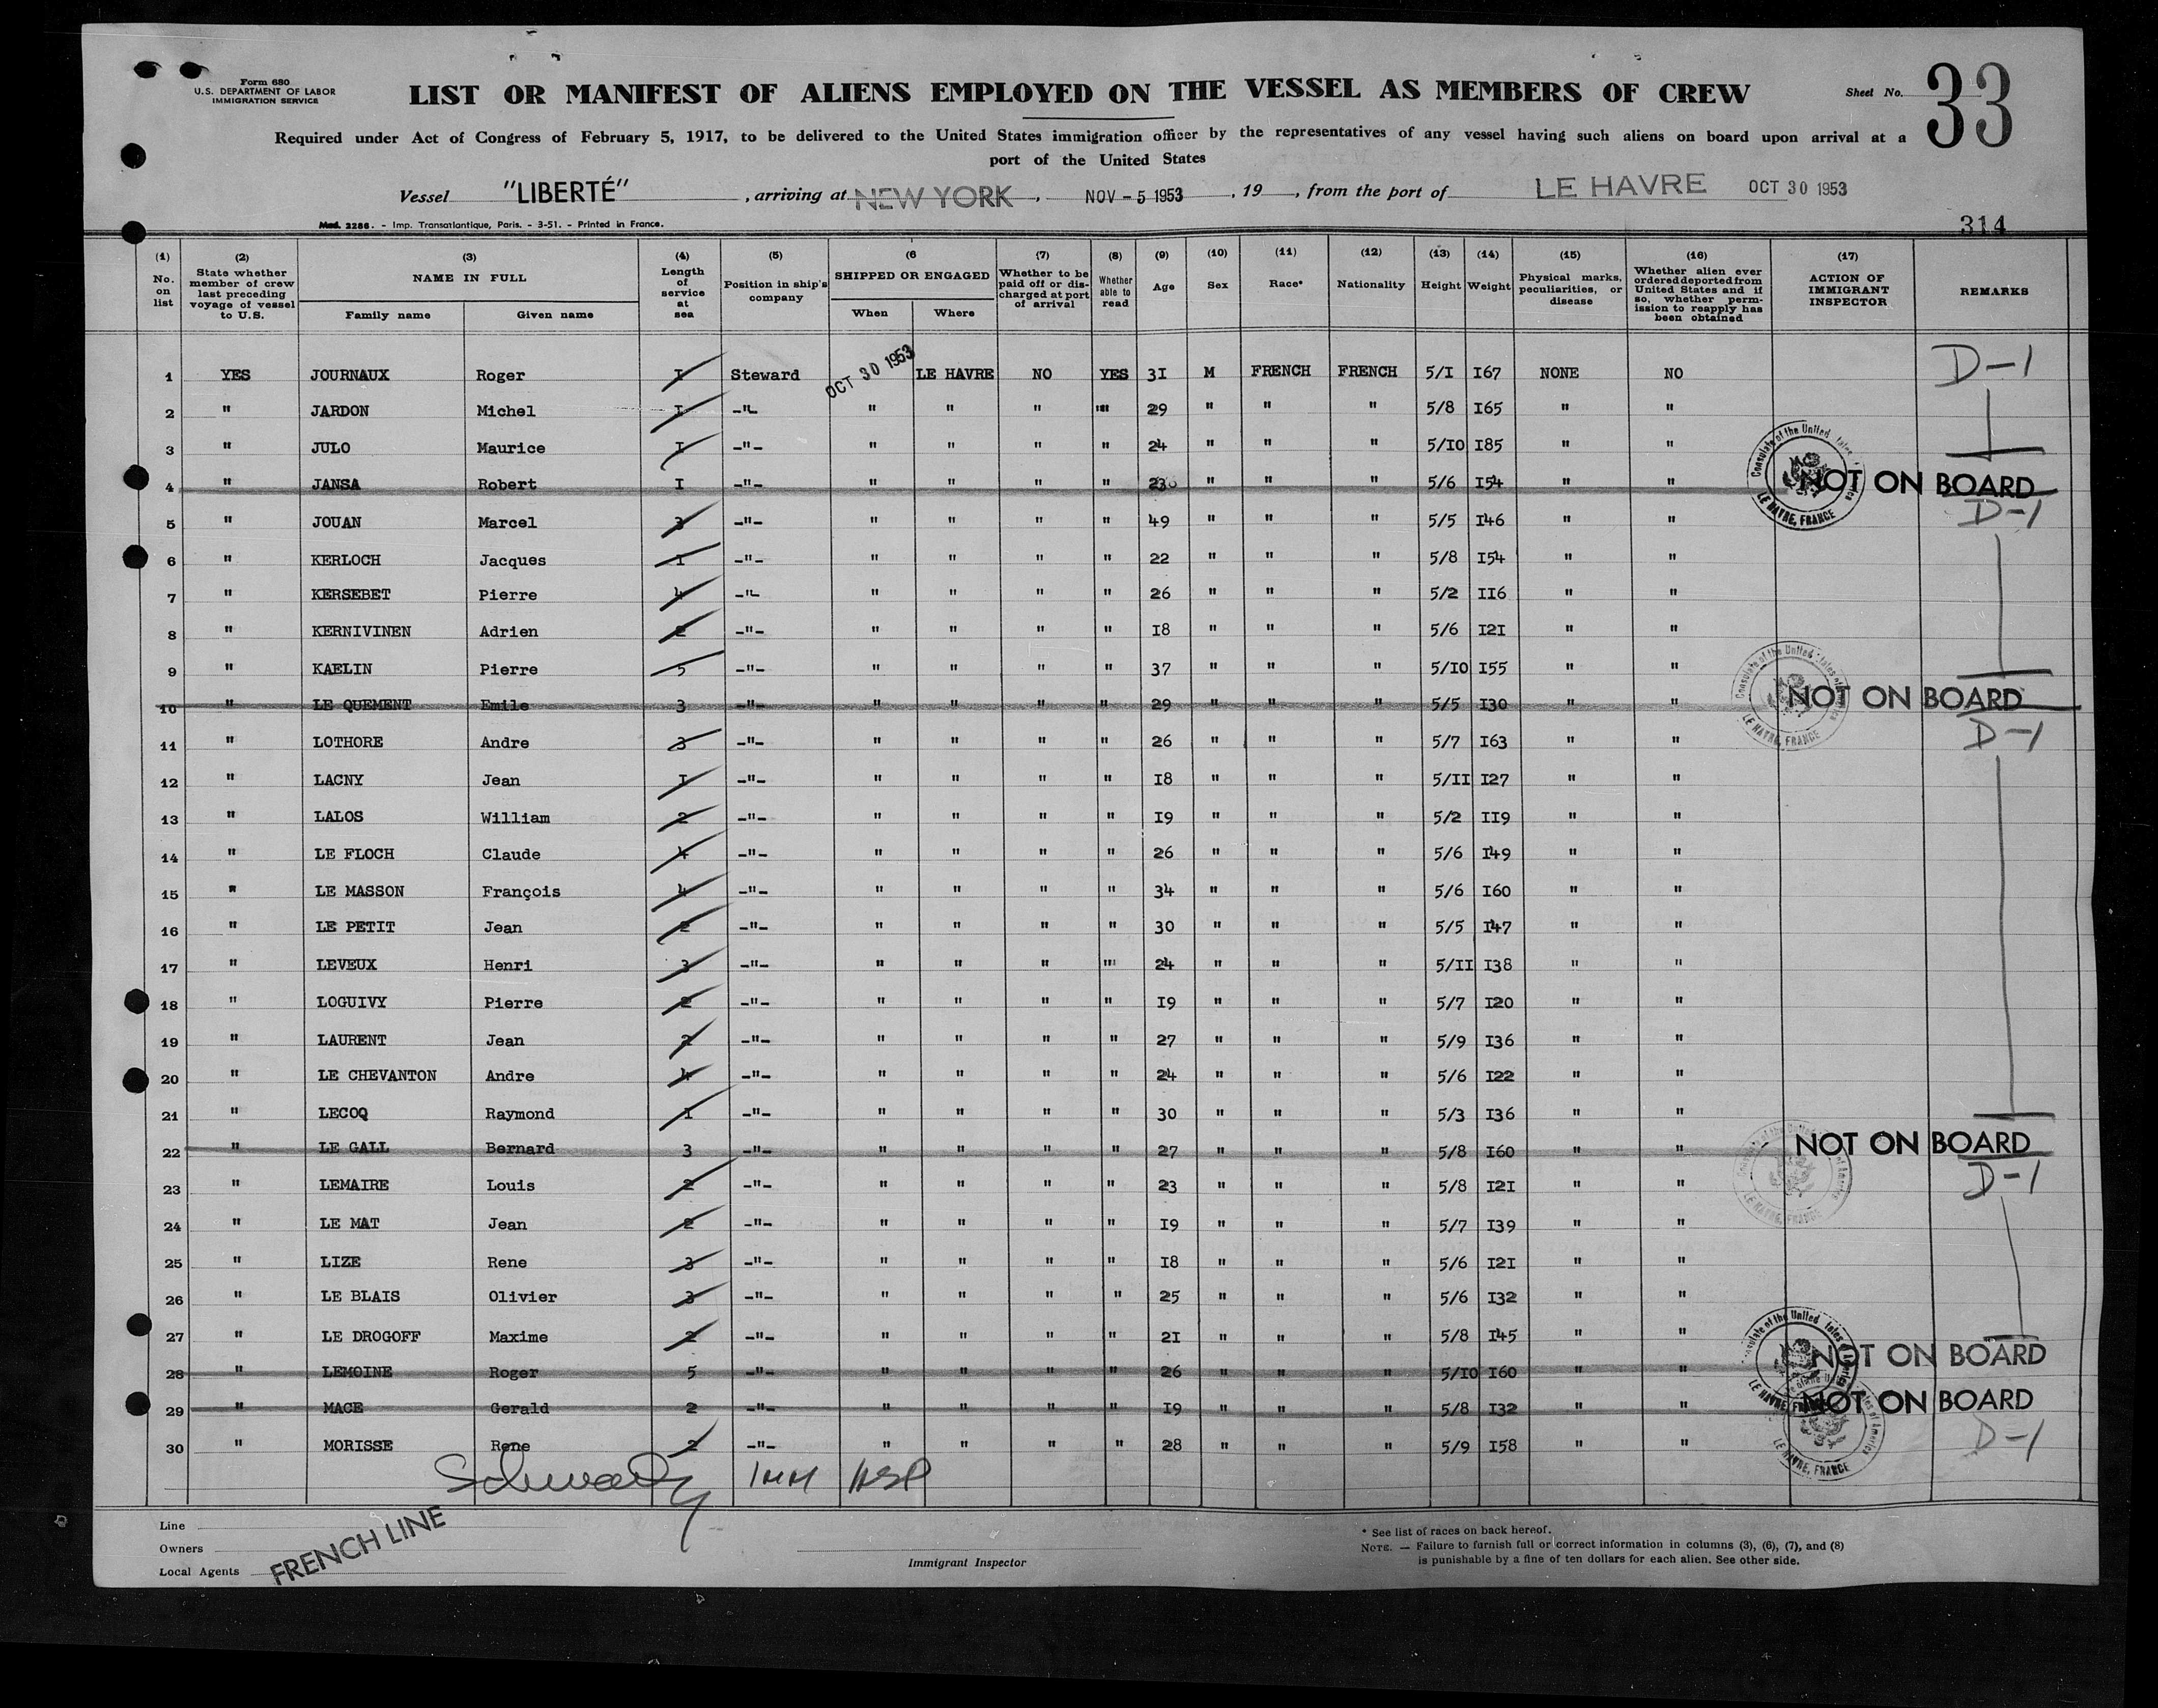 Form 680
U.S. DEPARTMENT OF LABOR
IMMIGRATION SERVICE
LIST OR MANIFEST OF ALIENS EMPLOYED ON THE VESSEL AS MEMBERS OF CREW
Sheet No. 33
Required under Act of Congress of February 5, 1917, to be delivered to the United States immigration officer by the representatives of any vessel having such aliens on board upon arrival at a
port of the United States
Vessel "LIBERTÉ", arriving at NEW YORK, NOV - 5 1953, 19, from the port of LE HAVRE OCT 30 1953
Mod. 2286. - Imp. Transatlantique, Paris. - 3-51. - Printed in France.
314
(1) (2) (3) (4) (5) (6 (7) (8) (9) (10) (11) (12) (13) (14) (15) (16) (17)
No. on list
State whether member of crew last preceding voyage of vessel to U.S.
NAME IN FULL
Family name
Given name
Length of service at sea
Position in ship's company
SHIPPED OR ENGAGED
When
Where
Whether to be paid off or discharged at port of arrival
Whether able to read
Age
Sex
Race*
Nationality
Height
Weight
Physical marks, peculiarities, or disease
Whether alien ever ordered deported from United States and if so, whether permission to reapply has been obtained
ACTION OF IMMIGRANT INSPECTOR
REMARKS
1 YES JOURNAUX Roger I Steward OCT 30 1953 LE HAVRE NO YES 3I M FRENCH FRENCH 5/I I67 NONE NO D-1
2 " JARDON Michel I -"- " " " " 29 " " " 5/8 I65 " "
3 " JULO Maurice I -"- " " " " 24 " " " 5/IO I85 " "
4 " JANSA Robert I -"- " " " " 23 " " " 5/6 I54 " " NOT ON BOARD
5 " JOUAN Marcel 3 -"- " " " " 49 " " " 5/5 I46 " " D-1
6 " KERLOCH Jacques I -"- " " " " 22 " " " 5/8 I54 " "
7 " KERSEBET Pierre 4 -"- " " " " 26 " " " 5/2 II6 " "
8 " KERNIVINEN Adrien 2 -"- " " " " I8 " " " 5/6 I2I " "
9 " KAELIN Pierre 5 -"- " " " " 37 " " " 5/IO I55 " "
10 " LE QUEMENT Emile 3 -"- " " " " 29 " " " 5/5 I30 " " NOT ON BOARD
11 " LOTHORE Andre 3 -"- " " " " 26 " " " 5/7 I63 " " D-1
12 " LACNY Jean I -"- " " " " I8 " " " 5/II I27 " "
13 " LALOS William 2 -"- " " " " I9 " " " 5/2 II9 " "
14 " LE FLOCH Claude 4 -"- " " " " 26 " " " 5/6 I49 " "
15 " LE MASSON François 4 -"- " " " " 34 " " " 5/6 I60 " "
16 " LE PETIT Jean 2 -"- " " " " 30 " " " 5/5 I47 " "
17 " LEVEUX Henri 3 -"- " " " " 24 " " " 5/II I38 " "
18 " LOGUIVY Pierre 2 -"- " " " " I9 " " " 5/7 I20 " "
19 " LAURENT Jean 2 -"- " " " " 27 " " " 5/9 I36 " "
20 " LE CHEVANTON Andre 4 -"- " " " " 24 " " " 5/6 I22 " "
21 " LECOQ Raymond I -"- " " " " 30 " " " 5/3 I36 " "
22 " LE GALL Bernard 3 -"- " " " " 27 " " " 5/8 I60 " " NOT ON BOARD
23 " LEMAIRE Louis 2 -"- " " " " 23 " " " 5/8 I2I " " D-1
24 " LE MAT Jean 2 -"- " " " " I9 " " " 5/7 I39 " "
25 " LIZE Rene 3 -"- " " " " I8 " " " 5/6 I2I " "
26 " LE BLAIS Olivier 3 -"- " " " " 25 " " " 5/6 I32 " "
27 " LE DROGOFF Maxime 2 -"- " " " " 2I " " " 5/8 I45 " "
28 " LEMOINE Roger 5 -"- " " " " 26 " " " 5/IO I60 " " NOT ON BOARD
29 " MACE Gerald 2 -"- " " " " I9 " " " 5/8 I32 " " NOT ON BOARD
30 " MORISSE Rene 2 -"- " " " " 28 " " " 5/9 I58 " " D-1
Consulate of the United States of America
LE HAVRE, FRANCE
Consulate of the United States of America
LE HAVRE, FRANCE
Consulate of the United States of America
LE HAVRE, FRANCE
Consulate of the United States of America
LE HAVRE, FRANCE
LE HAVRE, FRANCE
Line
Owners
Local Agents
FRENCH LINE
Immigrant Inspector
* See list of races on back hereof.
NOTE. — Failure to furnish full or correct information in columns (3), (6), (7), and (8)
is punishable by a fine of ten dollars for each alien. See other side.